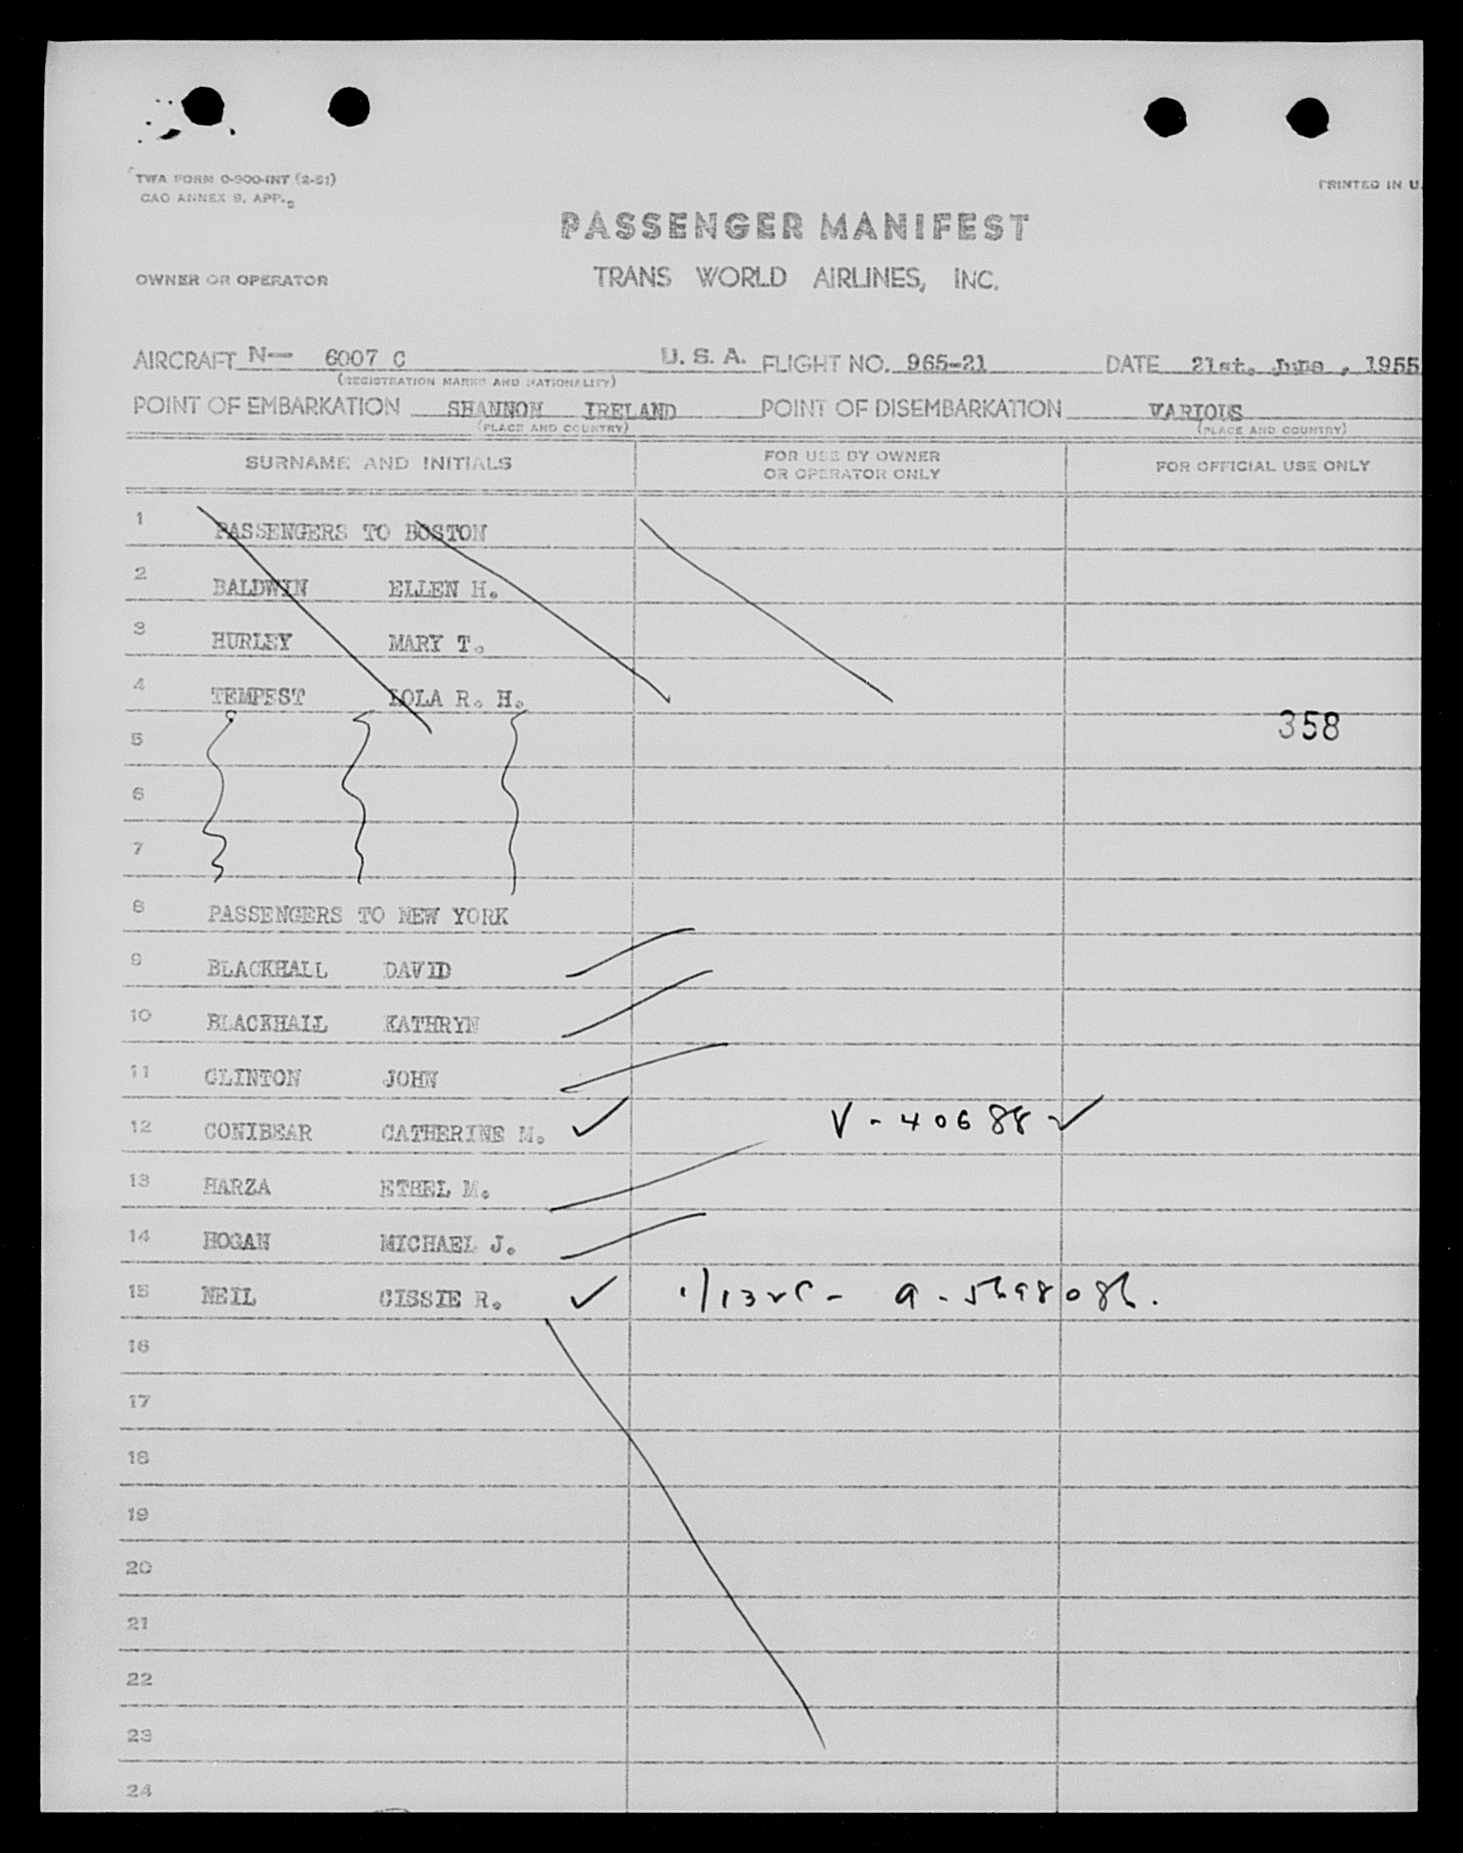 TWA FORM O-900-INT (2-51)
CAO ANNEX 9, APP.
PRINTED IN U.
PASSENGER MANIFEST
OWNER OR OPERATOR TRANS WORLD AIRLINES, INC.
AIRCRAFT N— 6007 C U. S. A. FLIGHT NO. 965-21 DATE 21st. June , 1955
(REGISTRATION MARKS AND NATIONALITY)
POINT OF EMBARKATION SHANNON IRELAND POINT OF DISEMBARKATION VARIOUS
(PLACE AND COUNTRY) (PLACE AND COUNTRY)
SURNAME AND INITIALS FOR USE BY OWNER OR OPERATOR ONLY FOR OFFICIAL USE ONLY
1 PASSENGERS TO BOSTON
2 BALDWIN ELLEN H.
3 HURLEY MARY T.
4 TEMPEST LOLA R. H.
358
5
6
7
8 PASSENGERS TO NEW YORK
9 BLACKHALL DAVID
10 BLACKHALL KATHRYN
11 CLINTON JOHN
12 CONIBEAR CATHERINE M. ✓ V - 40688 ✓
13 HARZA ETHEL M.
14 HOGAN MICHAEL J.
15 NEIL CISSIE R. ✓
16
17
18
19
20
21
22
23
24